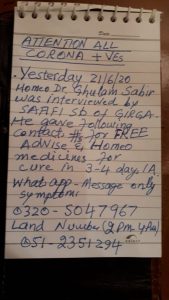 Date
ATTENTION ALL
CORONA +VEs
-Yesterday 21/6/20
Homeo Dr. Ghulam Sabir
was interviewed by
SAFFI Sb of GIRGA-
He gave following
Contact #s for FREE
Advise & Homeo
medicines for
cure in 3-4 days IA.
Whatapp-Message only
symptoms
0320-5047967
Land Number (2PM-4PM)
051-2351294